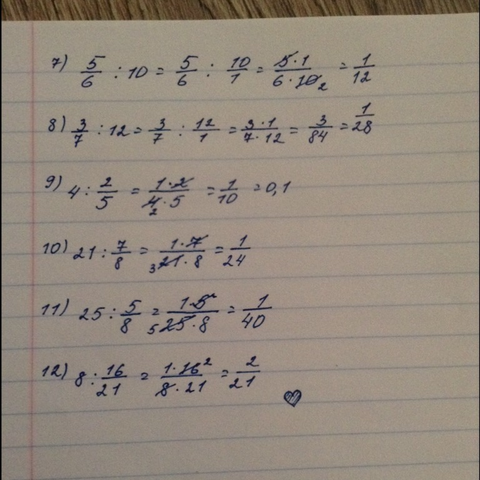 7) 5/6 : 10 = 5/6 : 10/1 = 5·1/6·10 2 = 1/12
8) 3/7 : 12 = 3/7 : 12/1 = 3·1/7·12 = 3/84 = 1/28
9) 4 : 2/5 = 1·2/4·5 2 = 1/10 = 0,1
10) 21 : 7/8 = 1·7/3 21·8 = 1/24
11) 25 : 5/8 = 1·5/5 25·8 = 1/40
12) 8 : 16/21 = 1·16 2/8·21 = 2/21